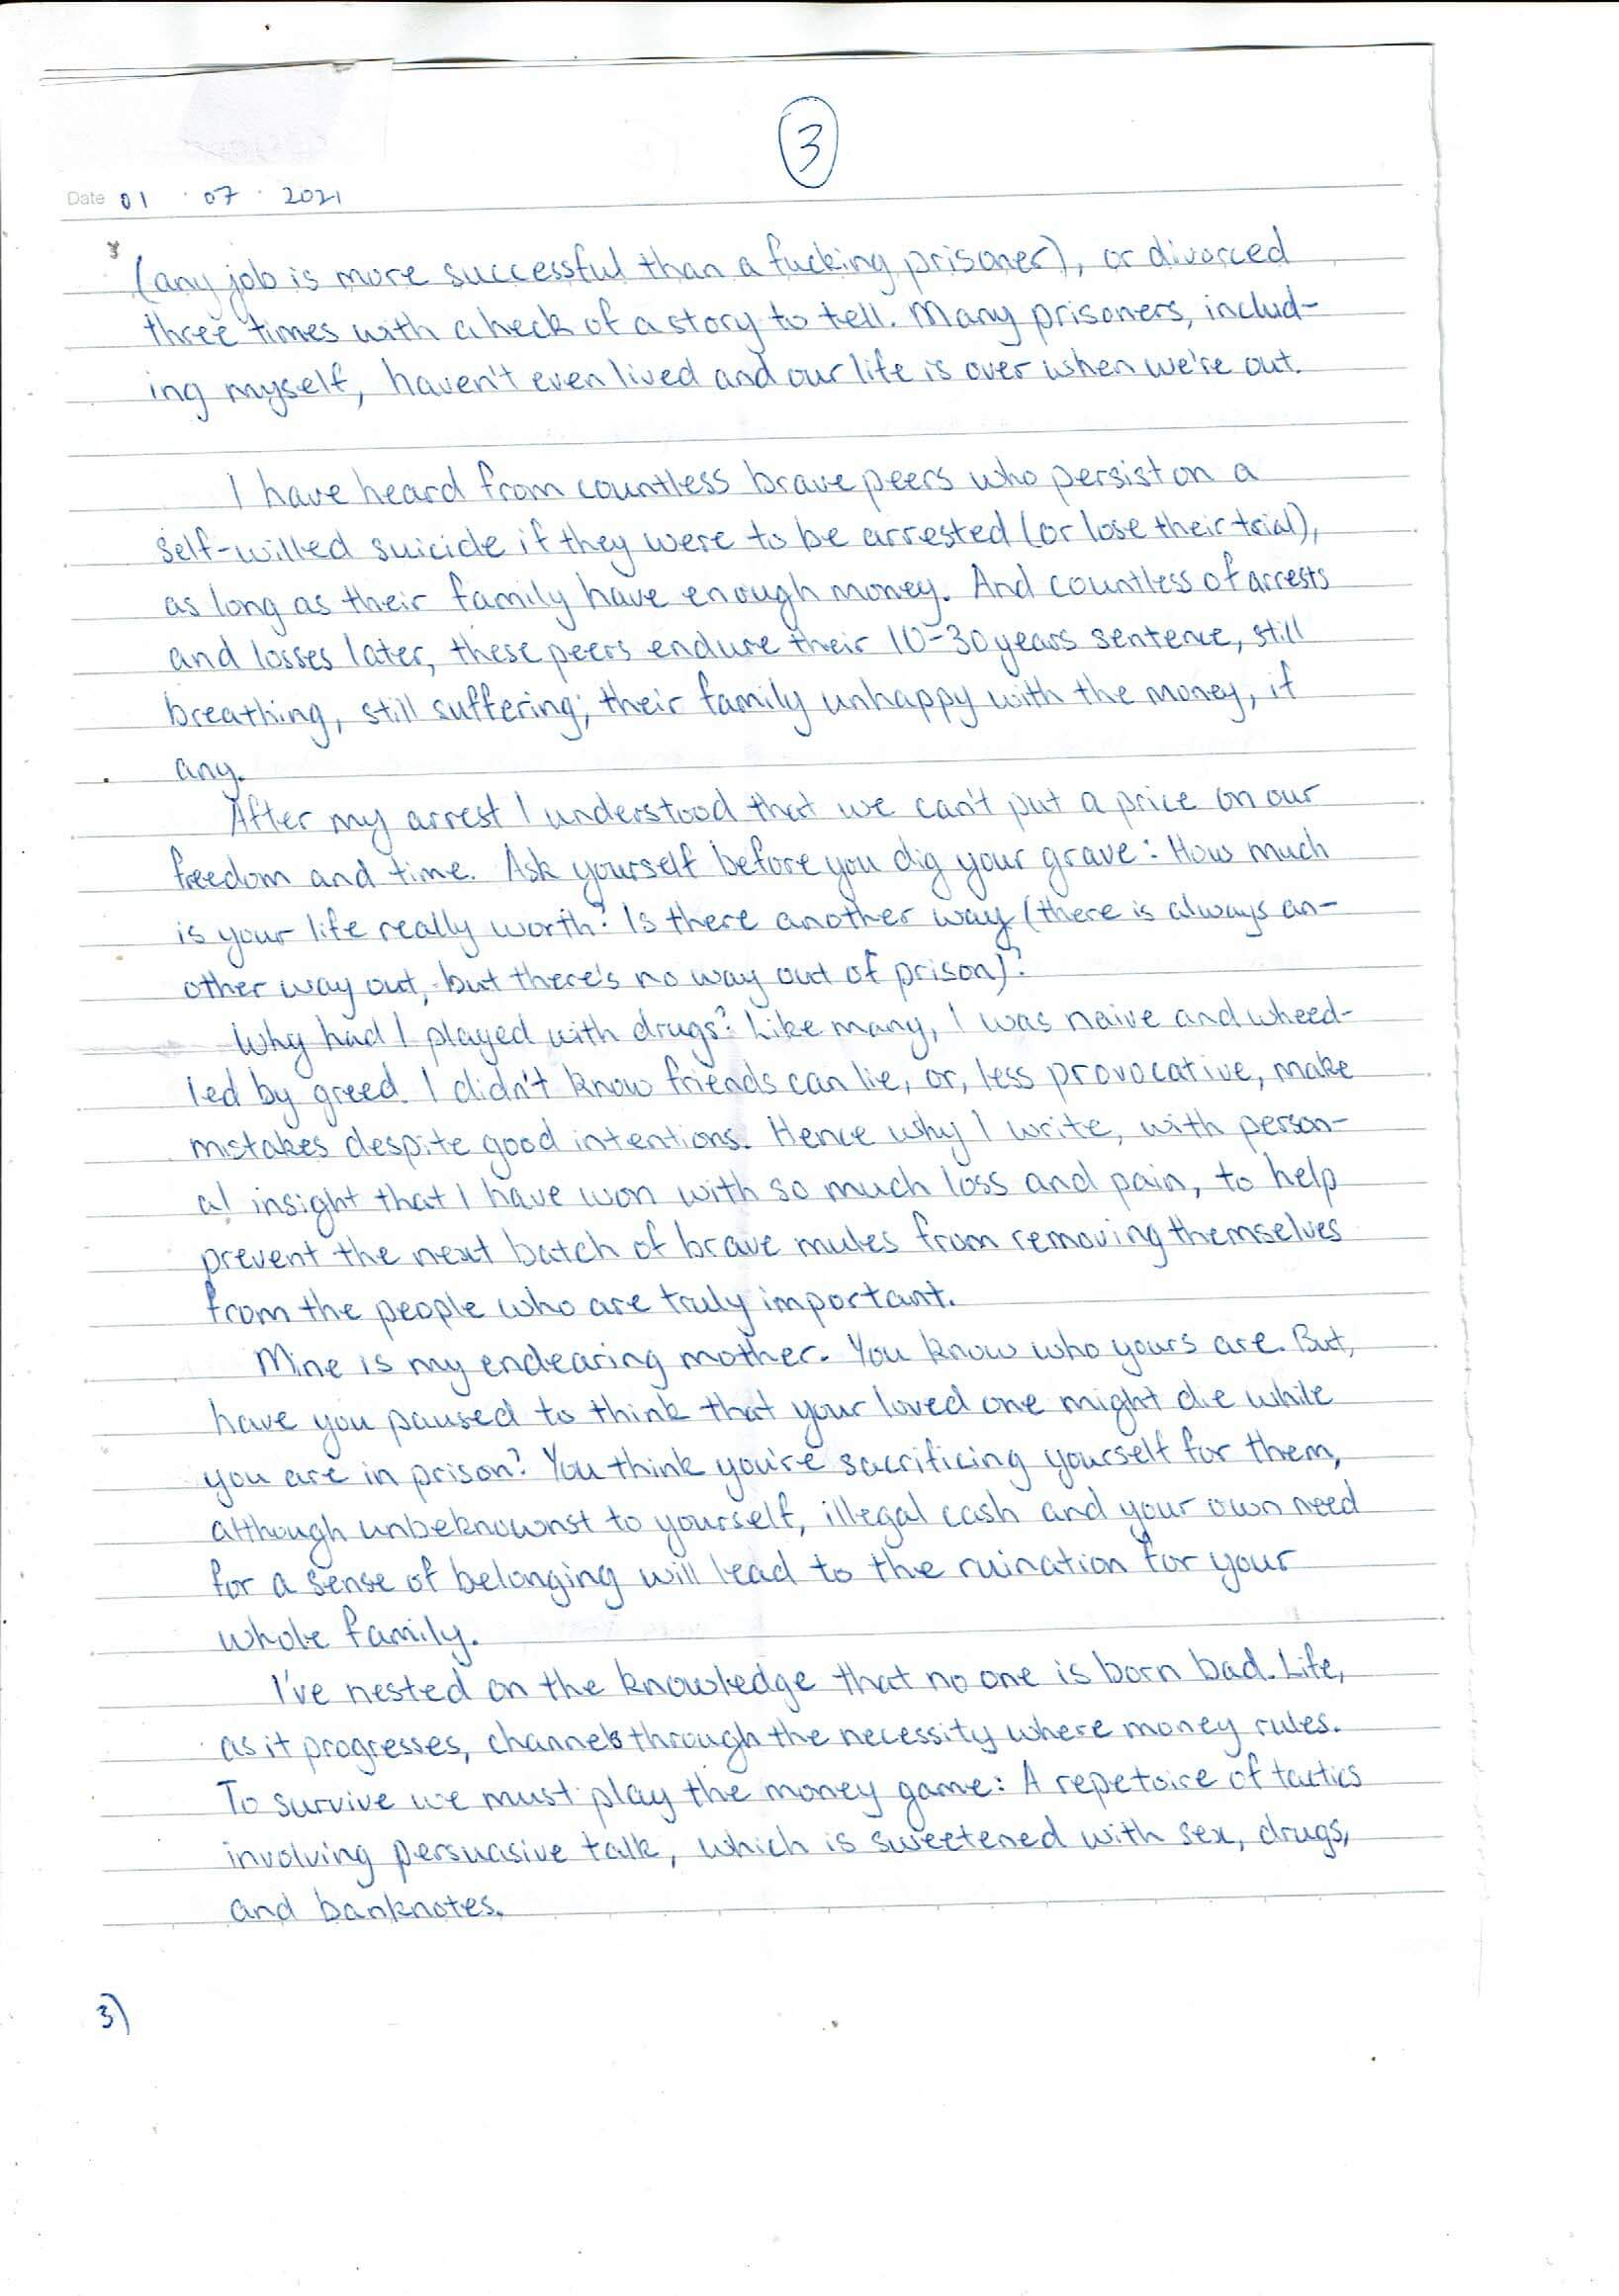 3
Date 01 · 07 · 2021
(any job is more successful than a fucking prisoner), or divorced
three times with a heck of a story to tell. Many prisoners, includ-
ing myself, haven't even lived and our life is over when we're out.
I have heard from countless brave peers who persist on a
self-willed suicide if they were to be arrested (or lose their trial),
as long as their family have enough money. And countless of arrests
and losses later, these peers endure their 10-30 years sentence, still
breathing, still suffering; their family unhappy with the money, if
any.
After my arrest I understood that we can't put a price on our
freedom and time. Ask yourself before you dig your grave: How much
is your life really worth? Is there another way (there is always an-
other way out, but there's no way out of prison)?
Why had I played with drugs? Like many, I was naive and wheed-
led by greed. I didn't know friends can lie, or, less provocative, make
mistakes despite good intentions. Hence why I write, with person-
al insight that I have won with so much loss and pain, to help
prevent the next batch of brave mules from removing themselves
from the people who are truly important.
Mine is my endearing mother. You know who yours are. But,
have you paused to think that your loved one might die while
you are in prison? You think you're sacrificing yourself for them,
although unbeknownst to yourself, illegal cash and your own need
for a sense of belonging will lead to the ruination for your
whole family.
I've nested on the knowledge that no one is born bad. Life,
as it progresses, channels through the necessity where money rules.
To survive we must play the money game: A repetoire of tactics
involving persuasive talk, which is sweetened with sex, drugs,
and banknotes.
3)